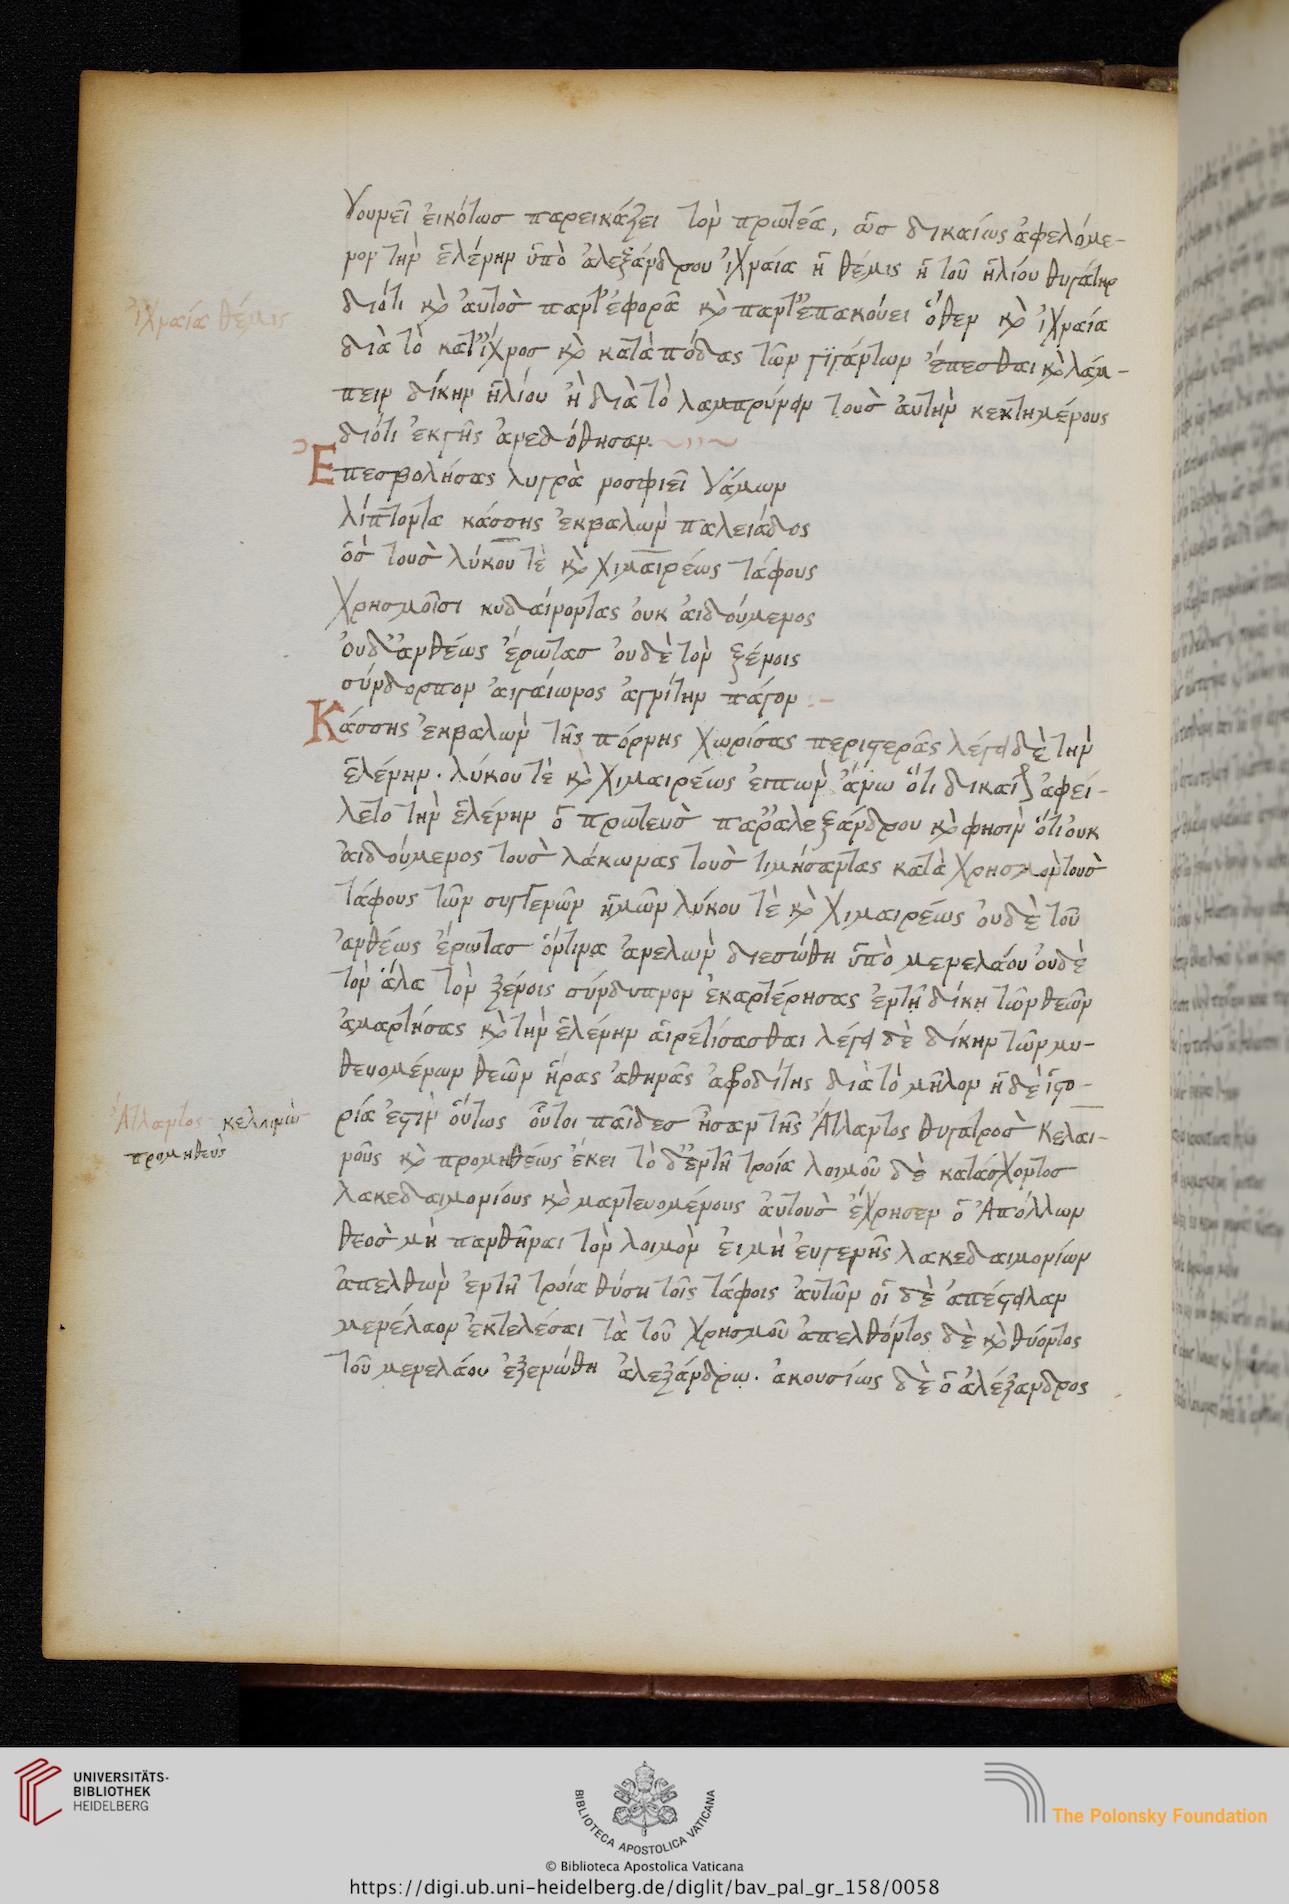 γουνεῖ εἰκότωσ παρεικάζει τὸν πρωτέα, ὡσ δικαίως ἀφελόμε-
νον τὴν ἑλένην ὑπὸ ἀλεξάνδρου ἰχναία ἡ θέμις ἡ τοῦ ἡλίου θυγάτηρ
διότι κ̀ αὐτὸσ πάντ' ἐφορᾶ κ̀ πάντ' ἐπακούει ὅθεν κ̀ ἰχναία
ἰχναία θέμις
διὰ τὸ κατ' ἴχνοσ κ̀ κατὰ πόδας τῶν γιγάντων ἕπεσθαι κ̀ λάμ-
πειν δίκην ἡλίου ἢ διὰ τὸ λαμπρύνειν τοὺσ αὐτὴν κεκτημένους
διότι ἐκ γῆς ἀνεδόθησαν.
Ἐπεσβολήσας λυγρὰ νοσφιεῖ γάμων
λίπτοντα κάσσης ἐκβαλὼν πελειάδος
ὃσ τοὺσ λύκου τὲ κ̀ χιμαιρέως τάφους
χρησμοῖσι κυδαίνοντας οὐκ αἰδούμενος
οὐδ' ἀνθέως ἔρωτασ οὐδὲ τὸν ξένοις
σύνδορπον αἰγαίωνος ἁγνίτην πάγον :-
Κάσσης ἐκβαλὼν τῆς πόρνης χωρίσας περιστερᾶς λέγει δὲ τὴν
ἑλένην. λύκου τὲ κ̀ χιμαιρέως εἰπὼν ἄνω ὅτι δικαίως ἀφεί-
λετο τὴν ἑλένην ὁ πρωτεὺσ παρ' ἀλεξάνδρου κ̀ φησὶν ὅτι οὐκ
αἰδούμενος τοὺσ λάκωνας τοὺσ τιμήσαντας κατὰ χρησμὸν τοὺσ
τάφους τῶν συγγενῶν ἡμῶν λύκου τὲ κ̀ χιμαιρέως οὐδὲ τοῦ
ἀνθέως ἔρωτασ ὅντινα ἀνελὼν διεσώθη ὑπὸ μενελάου οὐδὲ
τὸν ἅλα τὸν ξένοις σύνδυπνον ἐκαρτέρησας ἐν τῇ δίκῃ τῶν θεῶν
ἁμαρτήσας κ̀ τὴν ἑλένην αἱρετίσασθαι λέγει δὲ δίκην τῶν μυ-
θευομένων θεῶν ἥρας ἀθηνᾶς ἀφροδίτης διὰ τὸ μῆλον ἡ δὲ ἱστο-
ρία ἐστὶν οὕτως οὗτοι παῖδεσ ἦσαν τῆς Ἄτλαντος θυγατρὸσ Κελαι-
Ἄτλαντος κελλινὼ
προμηθεὺς
νοῦς κ̀ προμηθέως ἐκεῖ τὸ δ' ἐν τῆ τροία λοιμοῦ δὲ κατάσχοντοσ
λακεδαιμονίους κ̀ μαντευομένους αὐτοὺσ ἔχρησεν ὁ Ἀπόλλων
θεὸσ μὴ παυθῆναι τὸν λοιμὸν εἰ μὴ εὐγενῆς λακεδαιμονίων
ἀπελθὼν ἐν τῆ τροία θύση τοῖς τάφοις αὐτῶν οἱ δὲ ἀπέστειλαν
μενέλαον ἐκτελέσαι τὰ τοῦ χρησμοῦ ἀπελθόντος δὲ κ̀ θύοντος
τοῦ μενελάου ἐξενώθη ἀλεξάνδρω. ἀκουσίως δὲ ὁ ἀλέξανδρος
UNIVERSITÄTS-
BIBLIOTHEK
HEIDELBERG
BIBLIOTECA APOSTOLICA VATICANA
The Polonsky Foundation
© Biblioteca Apostolica Vaticana
https://digi.ub.uni-heidelberg.de/diglit/bav_pal_gr_158/0058